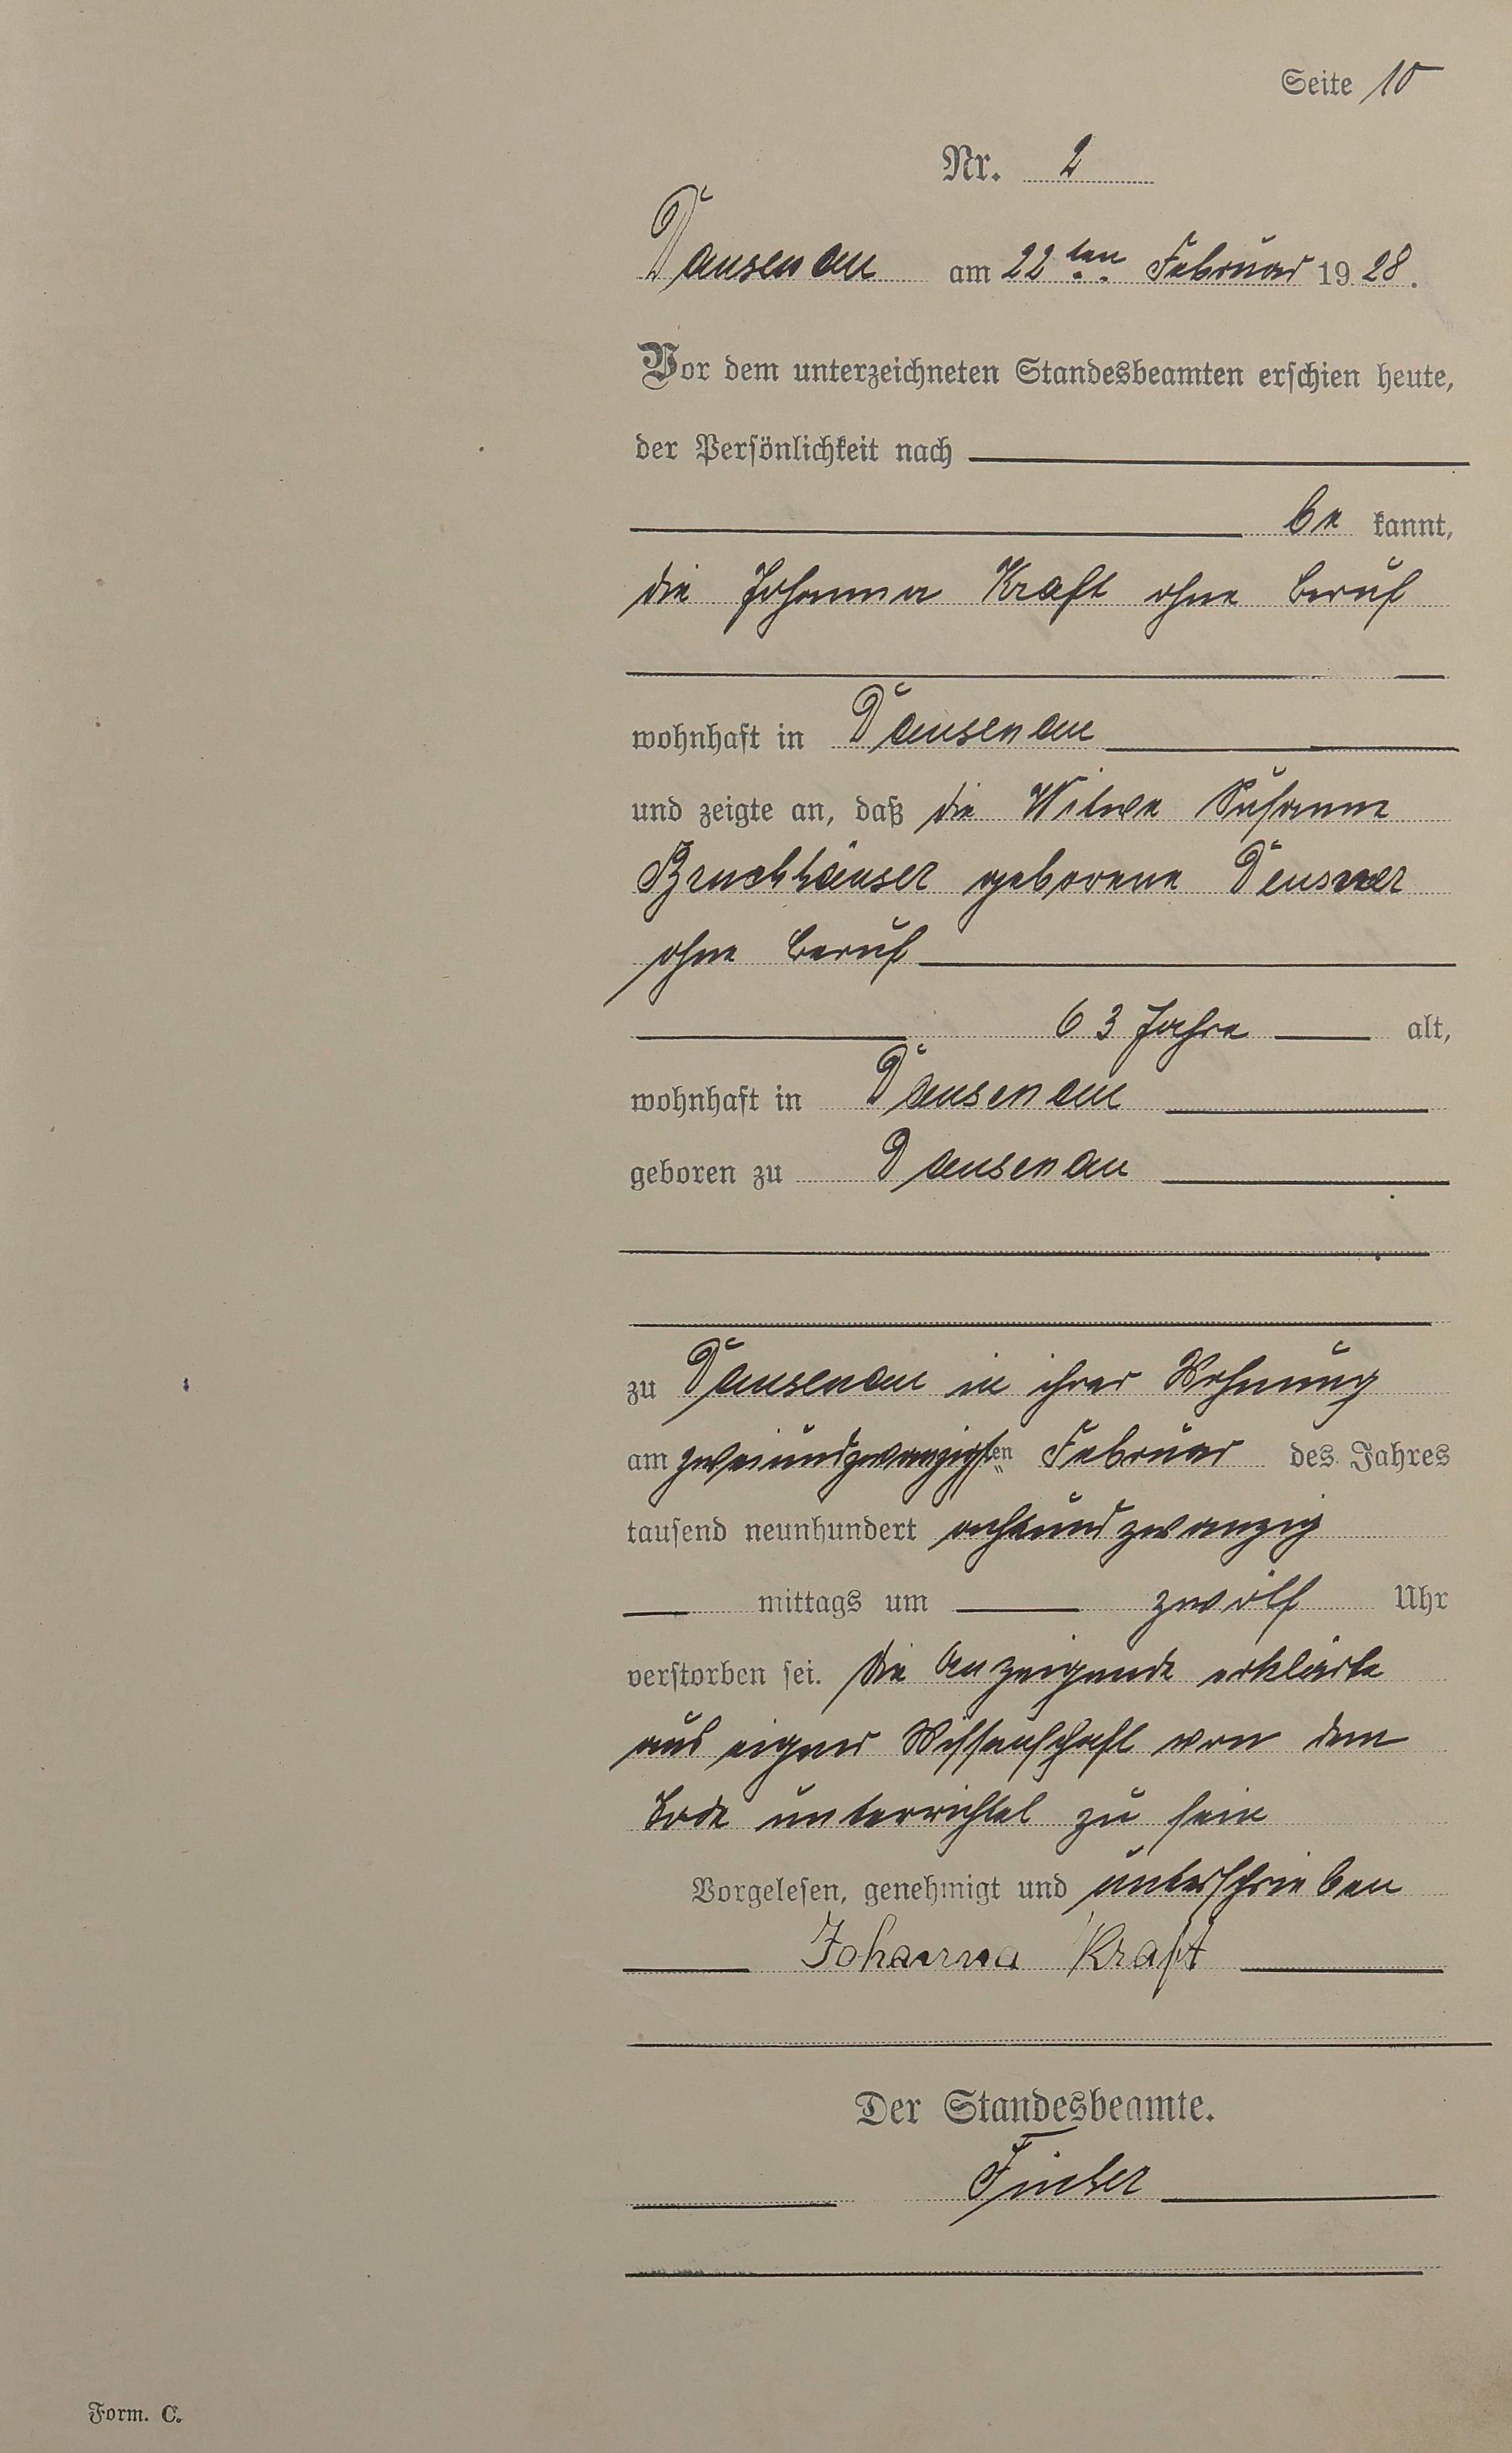 Seite 10
Nr. 2
Dausenau am 22ten Februar 1928.
Vor dem unterzeichneten Standesbeamten erschien heute,
der Persönlichkeit nach
be kannt,
die Johanna Kraft ohne Beruf
wohnhaft in Dausenau
und zeigte an, daß die Witwe Susanne
Bruchhäuser geborene
ohne Beruf
63 Jahre alt,
wohnhaft in Dausenau
geboren zu Dausenau
zu Dausenau in ihrer Wohnung
am zweiundzwanzigsten Februar des Jahres
tausend neunhundert achtundzwanzig
mittags um zwölf Uhr
verstorben sei. Die Anzeigende erklärte
aus eigner Wissenschaft von dem
Tode unterrichtet zu sein
Vorgelesen, genehmigt und unterschrieben
Johanna Kraft
Der Standesbeamte.
Form. C.